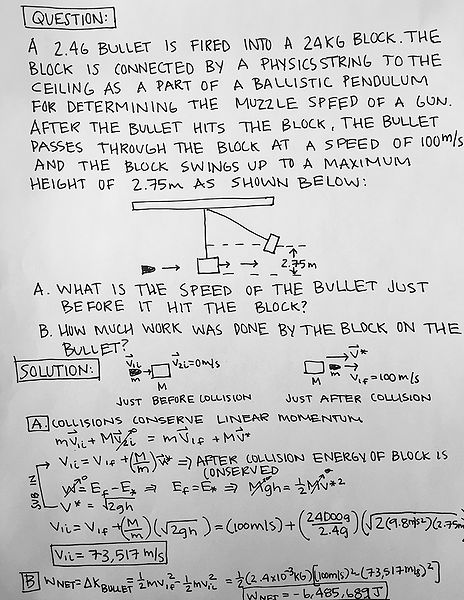 QUESTION:
A 2.4G BULLET IS FIRED INTO A 24KG BLOCK. THE
BLOCK IS CONNECTED BY A PHYSICS STRING TO THE
CEILING AS A PART OF A BALLISTIC PENDULUM
FOR DETERMINING THE MUZZLE SPEED OF A GUN.
AFTER THE BULLET HITS THE BLOCK, THE BULLET
PASSES THROUGH THE BLOCK AT A SPEED OF 100m/s
AND THE BLOCK SWINGS UP TO A MAXIMUM
HEIGHT OF 2.75m AS SHOWN BELOW:
2.75m
A. WHAT IS THE SPEED OF THE BULLET JUST
BEFORE IT HIT THE BLOCK?
B. HOW MUCH WORK WAS DONE BY THE BLOCK ON THE
BULLET?
SOLUTION:
V⃗1i V⃗2i=0m/s
m M
V⃗*
M m V1f=100m/s
JUST BEFORE COLLISION JUST AFTER COLLISION
A. COLLISIONS CONSERVE LINEAR MOMENTUM
mV⃗1i + MV⃗2i⁰ = mV⃗1f + MV⃗*
V1i = V1f + (M/m)V* ⇒ AFTER COLLISION ENERGY OF BLOCK IS
CONSERVED
SUB IN
W⁰ = Ef - E* ⇒ Ef = E* ⇒ Mgh = ½MV*²
V* = √2gh
V1i = V1f + (M/m)(√2gh) = (100m/s) + (24000g/2.4g)(√2(9.8m/s²)(2.75m)
V1i = 73,517 m/s
B WNET = ΔKBULLET = ½mV1f² - ½mV1i² = ½(2.4x10⁻³KG)[(100m/s)² - (73,517m/s)²]
WNET = -6,485,689J